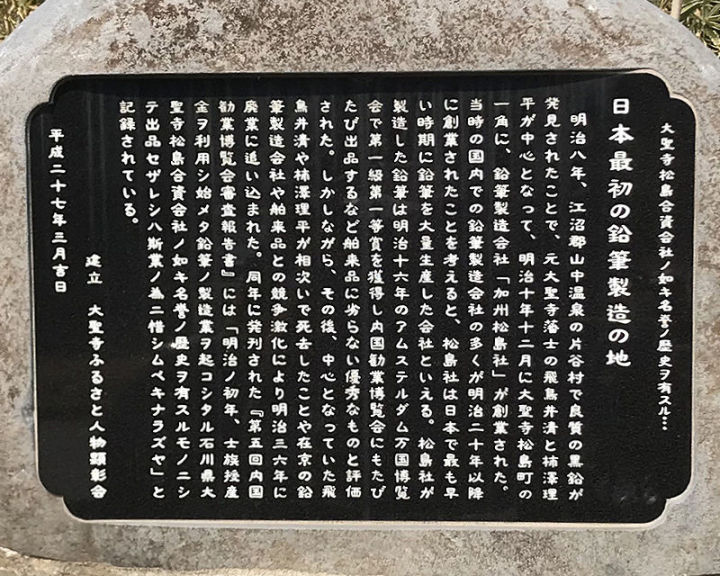 大聖寺松島合資会社ノ如キ名誉ノ歴史ヲ有スル…
日本最初の鉛筆製造の地
明治八年、江沼郡山中温泉の片谷村で良質の黒鉛が
発見されたことで、元大聖寺藩士の飛鳥井清と柿澤理
平が中心となって、明治十年十二月に大聖寺松島町の
一角に、鉛筆製造会社「加州松島社」が創業された。
当時の国内での鉛筆製造会社の多くが明治二十年以降
に創業されたことを考えると、松島社は日本で最も早
い時期に鉛筆を大量生産した会社といえる。松島社が
製造した鉛筆は明治十六年のアムステルダム万国博覧
会で第一級第一等賞を獲得し内国勧業博覧会にもたび
たび出品するなど舶来品に劣らない優秀なものと評価
された。しかしながら、その後、中心となっていた飛
鳥井清や柿澤理平が相次いで死去したことや在京の鉛
筆製造会社や舶来品との競争激化により明治三六年に
廃業に追い込まれた。同年に発刊された『第五回内国
勧業博覧会審査報告書』には「明治ノ初年、士族授産
金ヲ利用シ始メタ鉛筆ノ製造業ヲ起コシタル石川県大
聖寺松島合資会社ノ如キ名誉ノ歴史ヲ有スルモノニシ
テ出品セザレシハ斯業ノ為ニ惜シムベキナラズヤ」と
記録されている。
建立　大聖寺ふるさと人物顕彰会
平成二十七年三月吉日